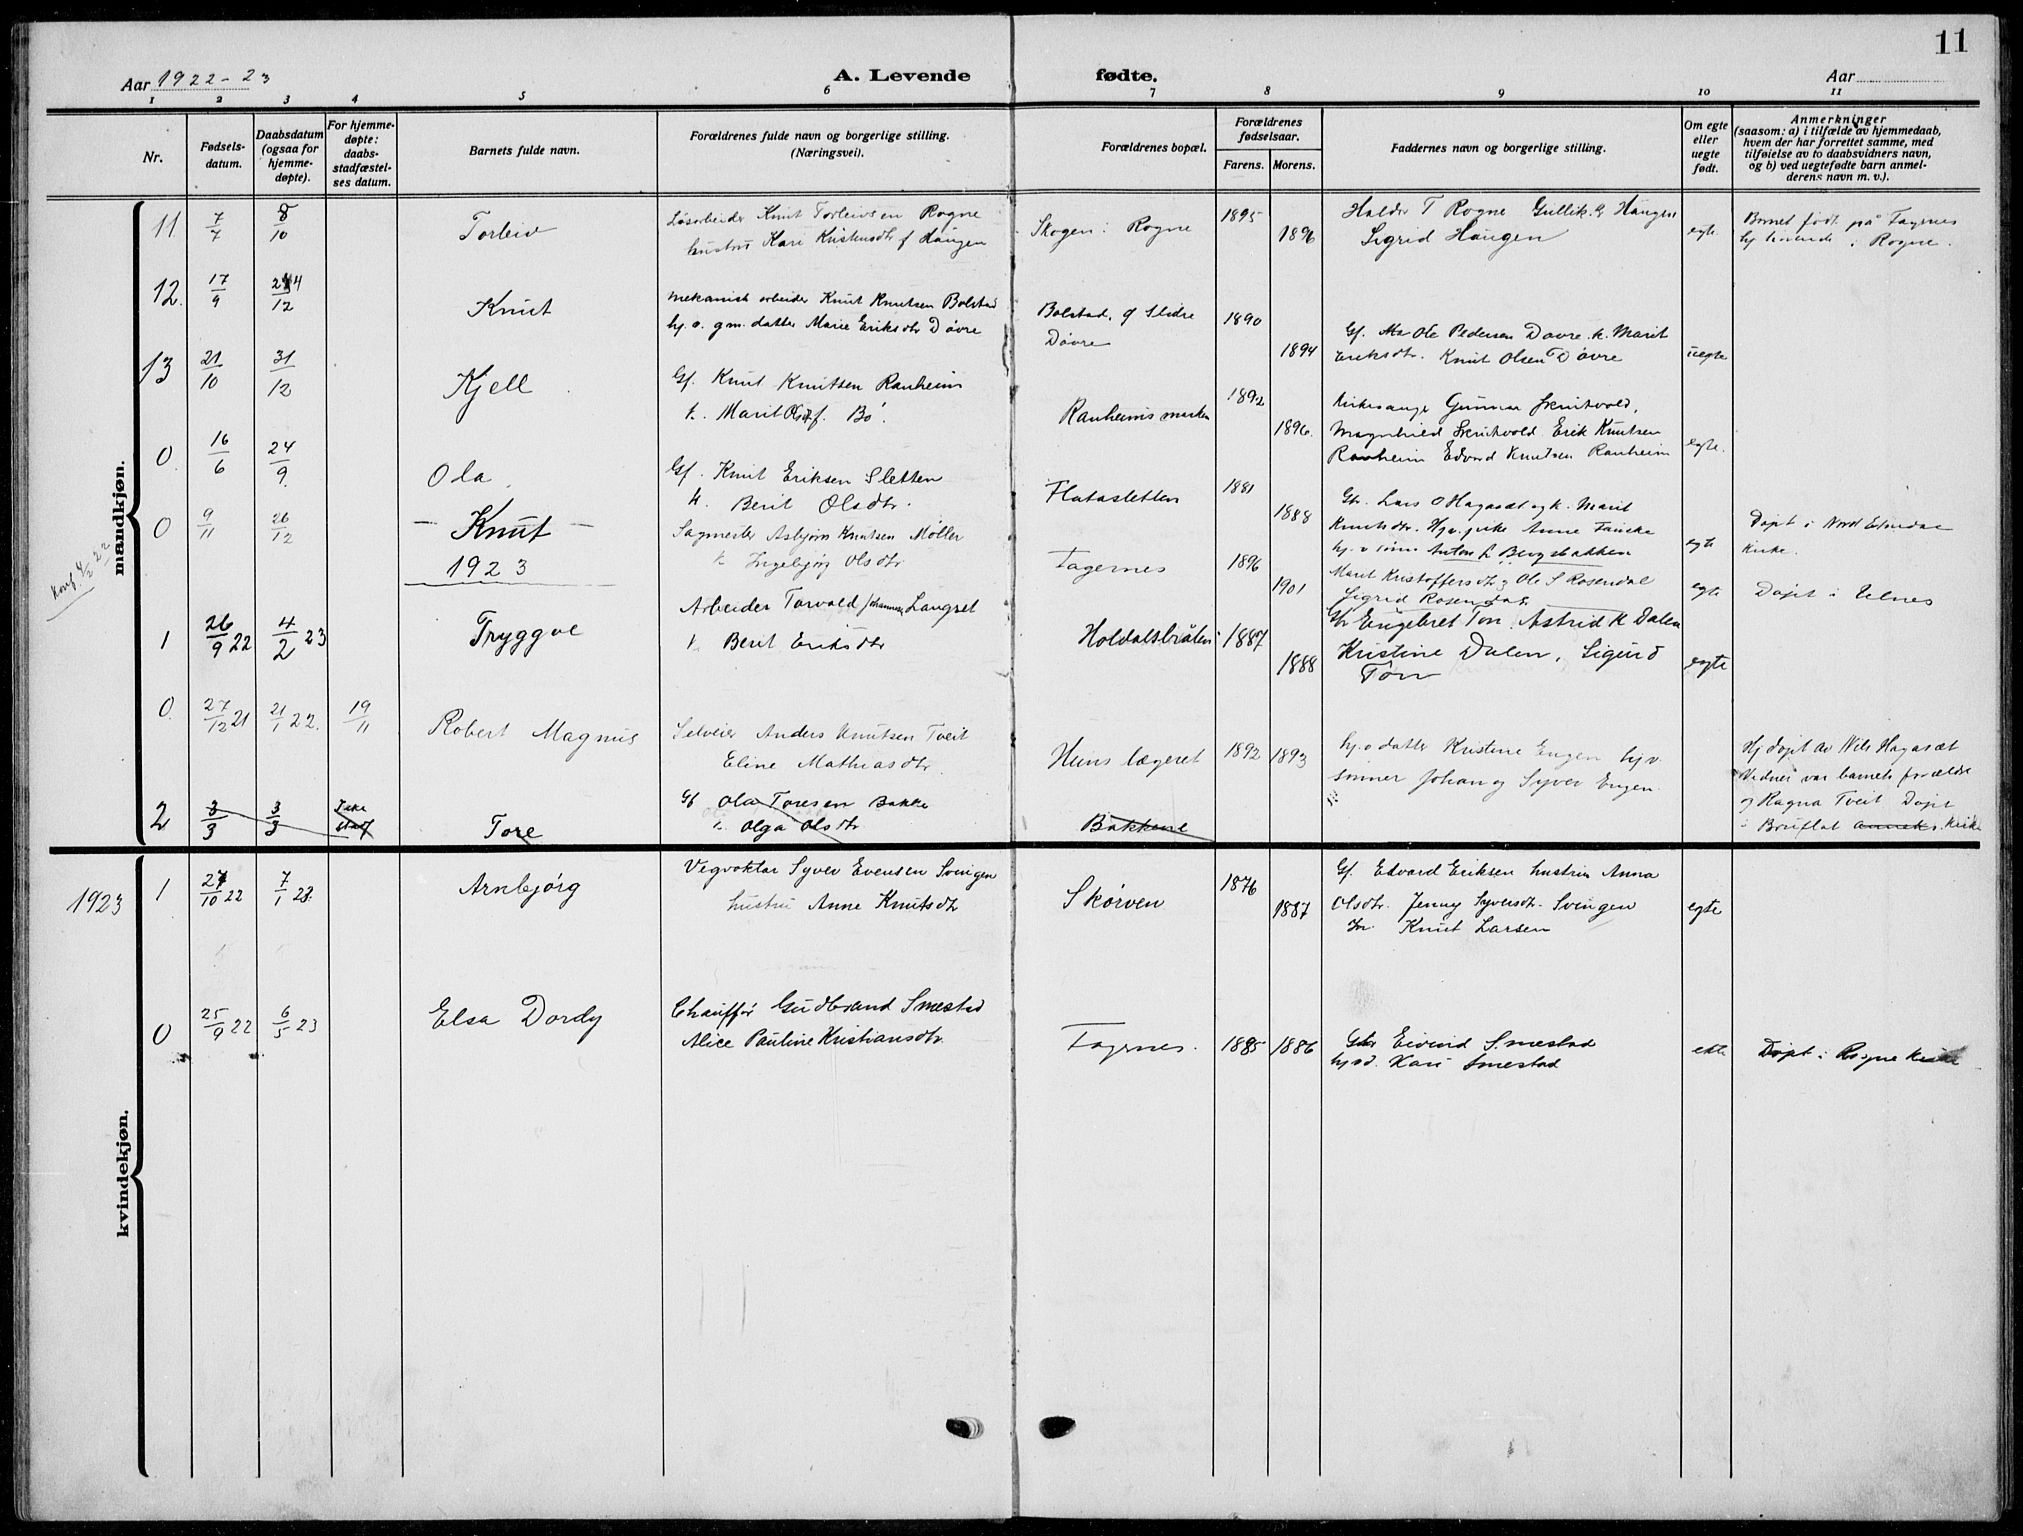 11
Aar 1922-23
A. Levende
fødte.
Aar
1 2 3 4 5 6 7 8 9 10 11
Nr.
Fødsels-
datum.
Daabsdatum
(ogsaa for
hjemme-
døpte).
For hjemme-
døpte:
daabs-
stadfæstel-
ses datum.
Barnets fulde navn.
Forældrenes fulde navn og borgerlige stilling.
(Næringsvei).
Forældrenes bopæl.
Forældrenes
fødselsaar.
Farens. Morens.
Faddernes navn og borgerlige stilling.
Om egte
eller
uegte
født.
Anmerkninger
(saasom: a) i tilfælde av hjemmedaab,
hvem der har forrettet samme, med
tilføielse av to daabsvidners navn,
og b) ved uegtefødte barn anmel-
derens navn m. v.).
mandkjøn.
11 7/7 8/10 Torleiv
Løsarbeider Knut Torleivsen Rogne
hustru Kari Kristensdtr f Haugen
Skogen i Rogne
1895
1896
Haldor T Rogne Gullik Haugen
Sigrid Haugen
egte
Barnet født på Fagernes
hj. hørende i Rogne.
12. 17/9 24/12 Knut
Mekanisk arbeider Knut Knutsen Bolstad
hj. o. gm. datter Marie Eriksdtr Døvre
Bolstad, Slidre
Døvre
1890
1894
Gf. Ole Pedersen Døvre k. Marit
Eriksdtr. Knut Olsen Døvre
uegte
13 21/10 31/12 Kjell
Gf. Knut Knutsen Ranheim
k. Marit Olsdtr f. Bø.
Ranheims marken
1892
1896.
Kirkesanger Gunnar Skrutvold,
Magnhild Skrutvold Erik Knutsen
Ranheim Edvard Knutsen Ranheim
egte.
0. 16/6 24/9 Ola
Gf. Knut Eriksen Sletten
k. Berit Olsdtr.
Flatasletten
1881
1888
Gbr. Lars O Hagasæt og k. Marit
Knutsdtr. Anne
hj. v. sønn Anton L Bergsbakken
egte
Døpt i Nord Etnedal
kirke.
Konf. 4/2 22
0 9/11 26/12 - Knut -
1923
Sagmester Asbjørn Knutsen Møller
k Ingebjørg Olsdtr
Fagernes
1896
1901
Marit Kristoffersdtr og Ole S Rosendal
Sigrid Rosendal
egte
Døpt i Ulnes
1 26/9 22 4/2 23 Tryggve
Arbeider Torvald Johannes Langset
k. Berit Eriksdtr
Holdalsbråten
1887
1888
Gbr Engebret Ton Astrid K Dalen
Kristine Dalen, Sigurd
Ton
egte
0. 27/12 21 21/1 22. 19/11 Robert Magnus
Selveier Anders Knutsen Tveit
Eline Mathiasdtr.
Huns lægeret
1892 1893
hj.v datter Kristine Engen hj v.
sønner Johan og Syver Engen.
Hj.døpt av Nils Hagasæt
Vidner var barnets forældre
og Ragna Tveit Døpt
i Bruflat anneks. kirke
2 3/3 3/3 Ikke
stadf Tore
Gf Ola Toresen Bakke
k. Olga Olsdtr
Bakkene
kvindekjøn.
1923
1 27/10 22 7/1 23. Arnbjørg
Vegvokter Syver Evensen Svingen
hustru Anne Knutsdtr
Skørven
1876
1887
Gf. Edvard Eriksen hustru Anna
Olsdtr. Jenny Syversdtr. Svingen
Knut Larsen
egte
0 25/9 22 6/5 23 Elsa Dordy
Chauffør Gudbrand Smestad
Alice Pauline Kristiansdtr.
Fagernes.
1885 1886
Gbr Eivind Smestad
hjvd. Kari Smestad
ekte
Døpt i Rogne kirke